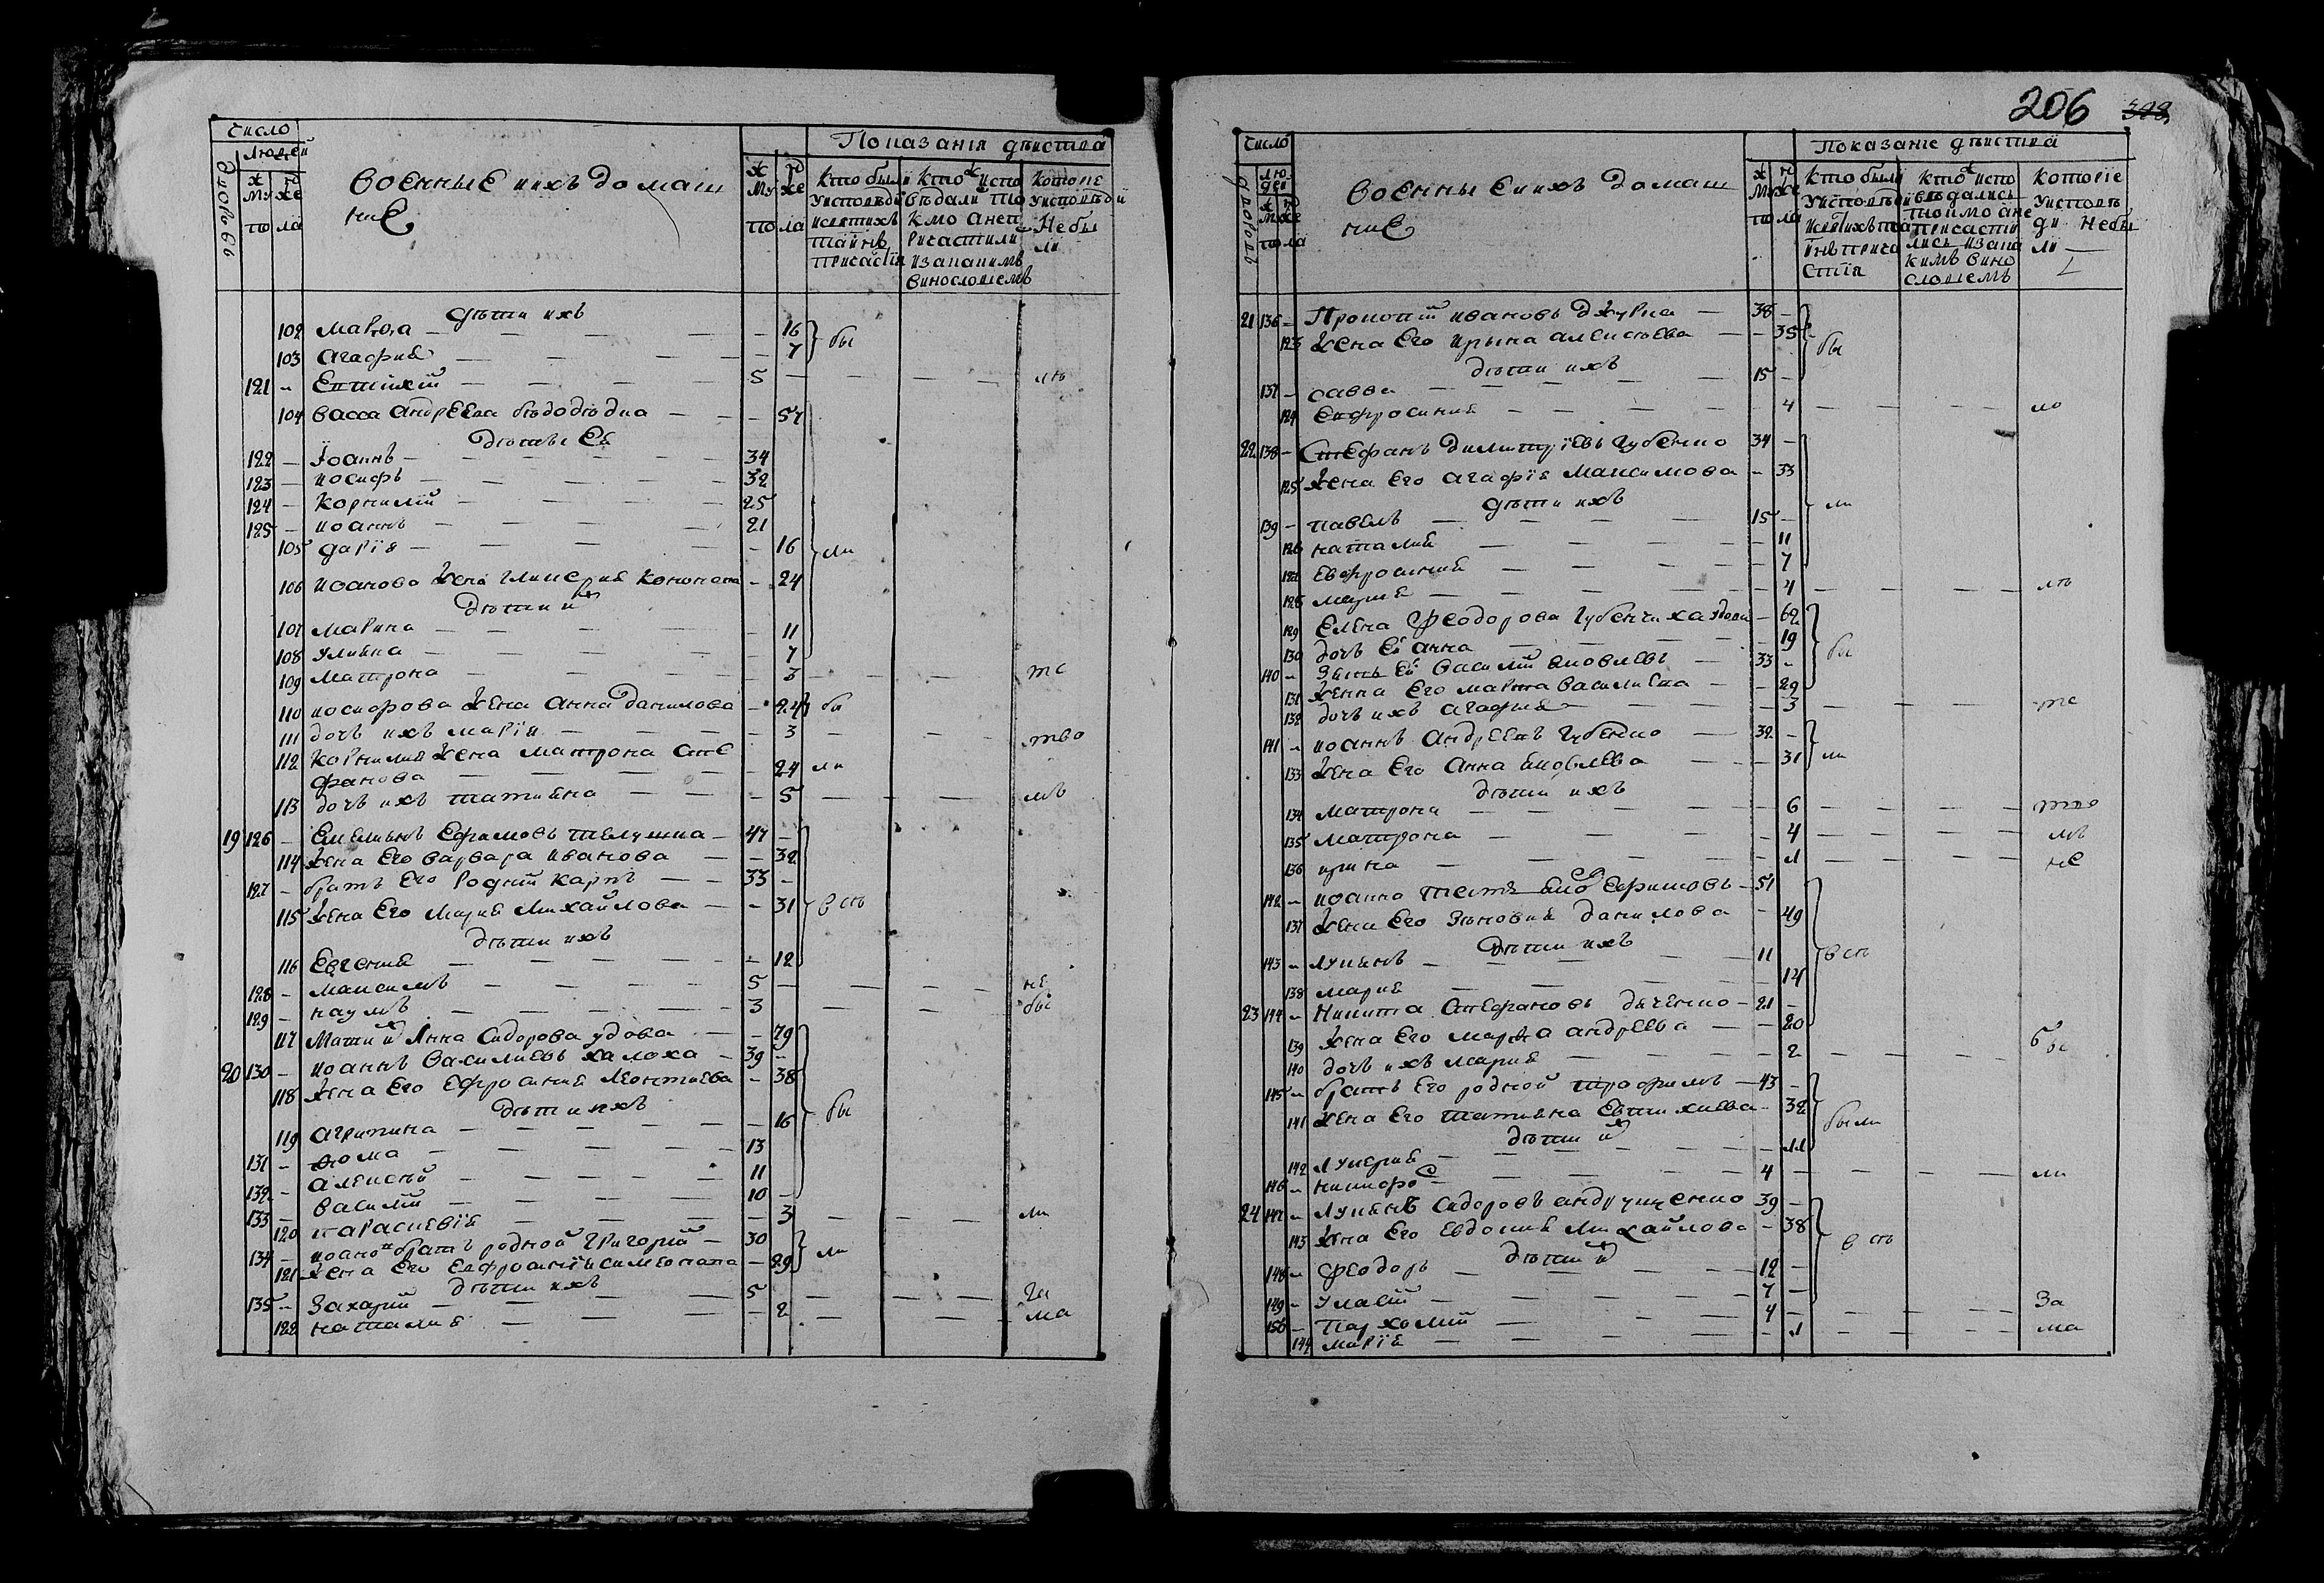 число
людей
дворовъ
муж
же
пола
военные и ихъ домаш
ние
муж
же
пола
Показанія дѣиства
кто были
у исповѣди
и святихъ
таинъ
причастія
кто испо
вѣдали то
кмо а неп
ричастили
и за каимъ
винословіемъ
которіе
у исповѣди
не бы
ли
дѣти ихъ
102 Марѳа — 16 бы
103 агафия — 7
121 - Евтихій — 5 — лѣ
104 васса андрѣева — 57
дѣти Ея
122 — Їоаннъ — 34
123 — иосифъ — 32
124 — Корнилій — 25
125 — иоаннъ — 21
105 дарія — 16 ли
106 иоанова жена гликерия — 24
дѣти ихъ
107 Марина — 11
108 улияна — 7
109 Матрона — 3 — те
110 иосифова жена анна данилова — 24 бы
111 дочъ ихъ марія — 3 — тво
112 Корнилия жена Матрона сте
фанова — 24 ли
113 дочъ ихъ татияна — 5 — лѣ
19 126 — Емелиянъ Ефимовъ телушка — 47 —
114 жена Его варвара иванова — 32
127 — братъ Его родній карпъ — 33 —
115 жена Его Мария Михайлова — 31 всѣ
дѣти ихъ
116 Евгения — 12
128 — Максимъ — 5 — не
129 — наумъ — 3 — бы
117 Мати ихъ Анна Сидорова удова — 79
20 130 — иоаннъ василиевъ халоха — 39 —
118 жена Его Ефросиния Леонтиева — 38
дѣти ихъ бы
119 агрипина — 16
131 — ѳома — 13
132 — алексѣй — 11
133 — василій — 10 —
120 параскевія — 3 — ли
134 — иоано братъ родной григорий — 30
121 жена Его Евфросинїя — 29 ли
дѣти ихъ
135 — Захарий — 5 — за
122 наталия — 2 — ма
206
число
людей
дворовъ
муж
же
пола
военны е и ихъ домаш
ние
муж
же
пола
Показаніе дѣиствій
кто были
у исповѣди
и святихъ та
инъ прича
стія
кто испо
вѣдались
токмо а не
причасти
лись и за ка
кимъ вино
словіемъ
которіе
у исповѣ
ди не бы
ли —
21 136 — Прокопій ивановъ джурка — 38 —
123 жена Его Ирына алексѣева — 35 бы
дѣти ихъ
137 — савва — 15 —
124 Евфросиния — 4 — ло
22 138 — Стефанъ димитріевъ губенко 34 —
125 жена Его агафія максимова — 33
дѣти ихъ ли
139 — павелъ — 15 —
126 наталия — 11
127 Евфросиния — 7
128 мария — 4 — лѣ
129 Елена Феодорова губенчиха удова — 62
130 дочъ Ея анна — 19 бы
140 — зять Ея василій яковлевъ — 33 —
131 жена Его марта василиева — 29
132 дочъ ихъ агафия — 3 — те
141 — иоаннъ андрѣевъ губенко — 32 —
133 жена Его анна яковлева — 31 ли
дѣти ихъ
134 матрона — 6 — тво
135 матрона — 4 — лѣ
136 ирина — 1 — не
142 — Ефимовъ — 51
137 жена Его Зѣновия данилова — 49
дѣти ихъ всѣ
143 — лукиянъ — 11
138 мария — 14
23 144 — Никита Стефановъ дяченко — 21 —
139 жена Его марѳа андрѣева — 20
140 дочъ ихъ мария — 2 — бы
145 — братъ Его родной трофимъ — 43 —
141 жена Его татияна Евтихиева — 32
дѣти ихъ были
142 лукерия — 11
146 — никифоръ — 4 — ли
24 147 — лукиянъ Сидоровъ андрущенко 39 —
143 жена Его Евдокия Михайлова — 38
дѣти ихъ всѣ
148 — Феодоръ — 12 —
149 — уласій — 7 —
150 — пархомій — 4 — за
144 марія — 1 — ма